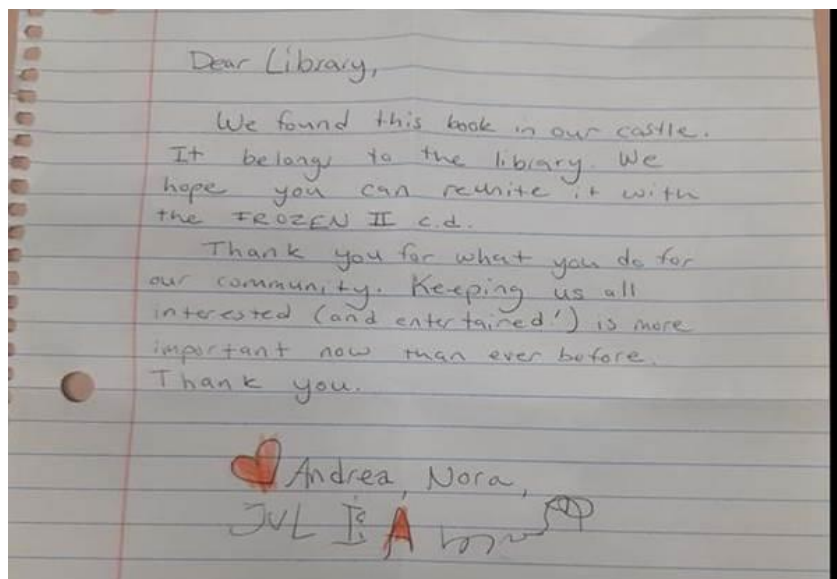 Dear Library,
We found this book in our castle.
It belongs to the library. We
hope you can reunite it with
the FROZEN II c.d.
Thank you for what you do for
our community. Keeping us all
interested (and entertained!) is more
important now than ever before.
Thank you.
Andrea, Nora,
JULIA